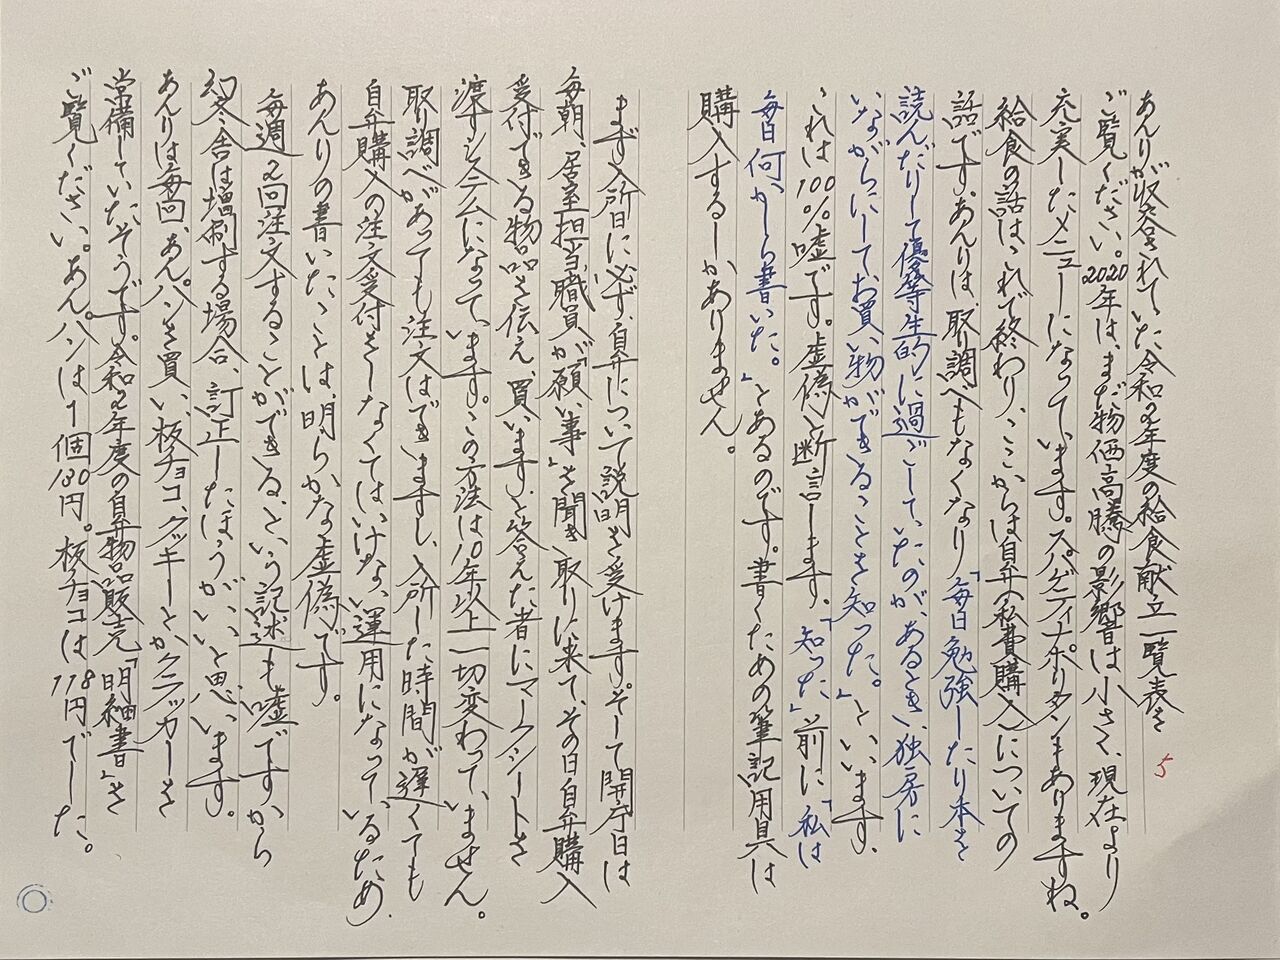 5
あんりが収容されていた令和2年度の給食献立一覧表を
ご覧ください。2020年は、まだ物価高騰の影響は小さく、現在より
充実したメニューになっています。スパゲティナポリタンもありますね。
給食の話はこれで終わり、ここからは自弁の私費購入についての
話です。あんりは、取り調べもなくなり「毎日勉強したり本を
読んだりして優等生的に過ごしていたのが、あるとき、独房に
いながらにしてお買い物ができることを知った。」といいます。
これは100%嘘です。虚偽と断言します。「知った」前に「私は
毎日何かしら書いた。」とあるのです。書くための筆記用具は
購入するしかありません。
まず入所日に必ず、自弁について説明を受けます。そして開庁日は
毎朝、居室担当職員が「願い事」を聞き取りに来て、その日自弁購入
受付できる物品を伝え、買いますと答えた者にマークシートを
渡すシステムになっています。この方法は10年以上一切変わっていません。
取り調べがあっても注文はできますし、入所した時間が遅くても
自弁購入の注文受付をしなくてはいけない運用になっているため、
あんりの書いたことは、明らかな虚偽です。
毎週2回注文することができる、という記述も嘘ですから
幻冬舎は増刷する場合、訂正したほうがいいと思います。
あんりは毎回、あんパンを買い、板チョコ、クッキーとかクラッカーを
常備していたそうです。令和2年度の自弁物品販売「明細書」を
ご覧ください。あんパンは1個130円。板チョコは118円でした。